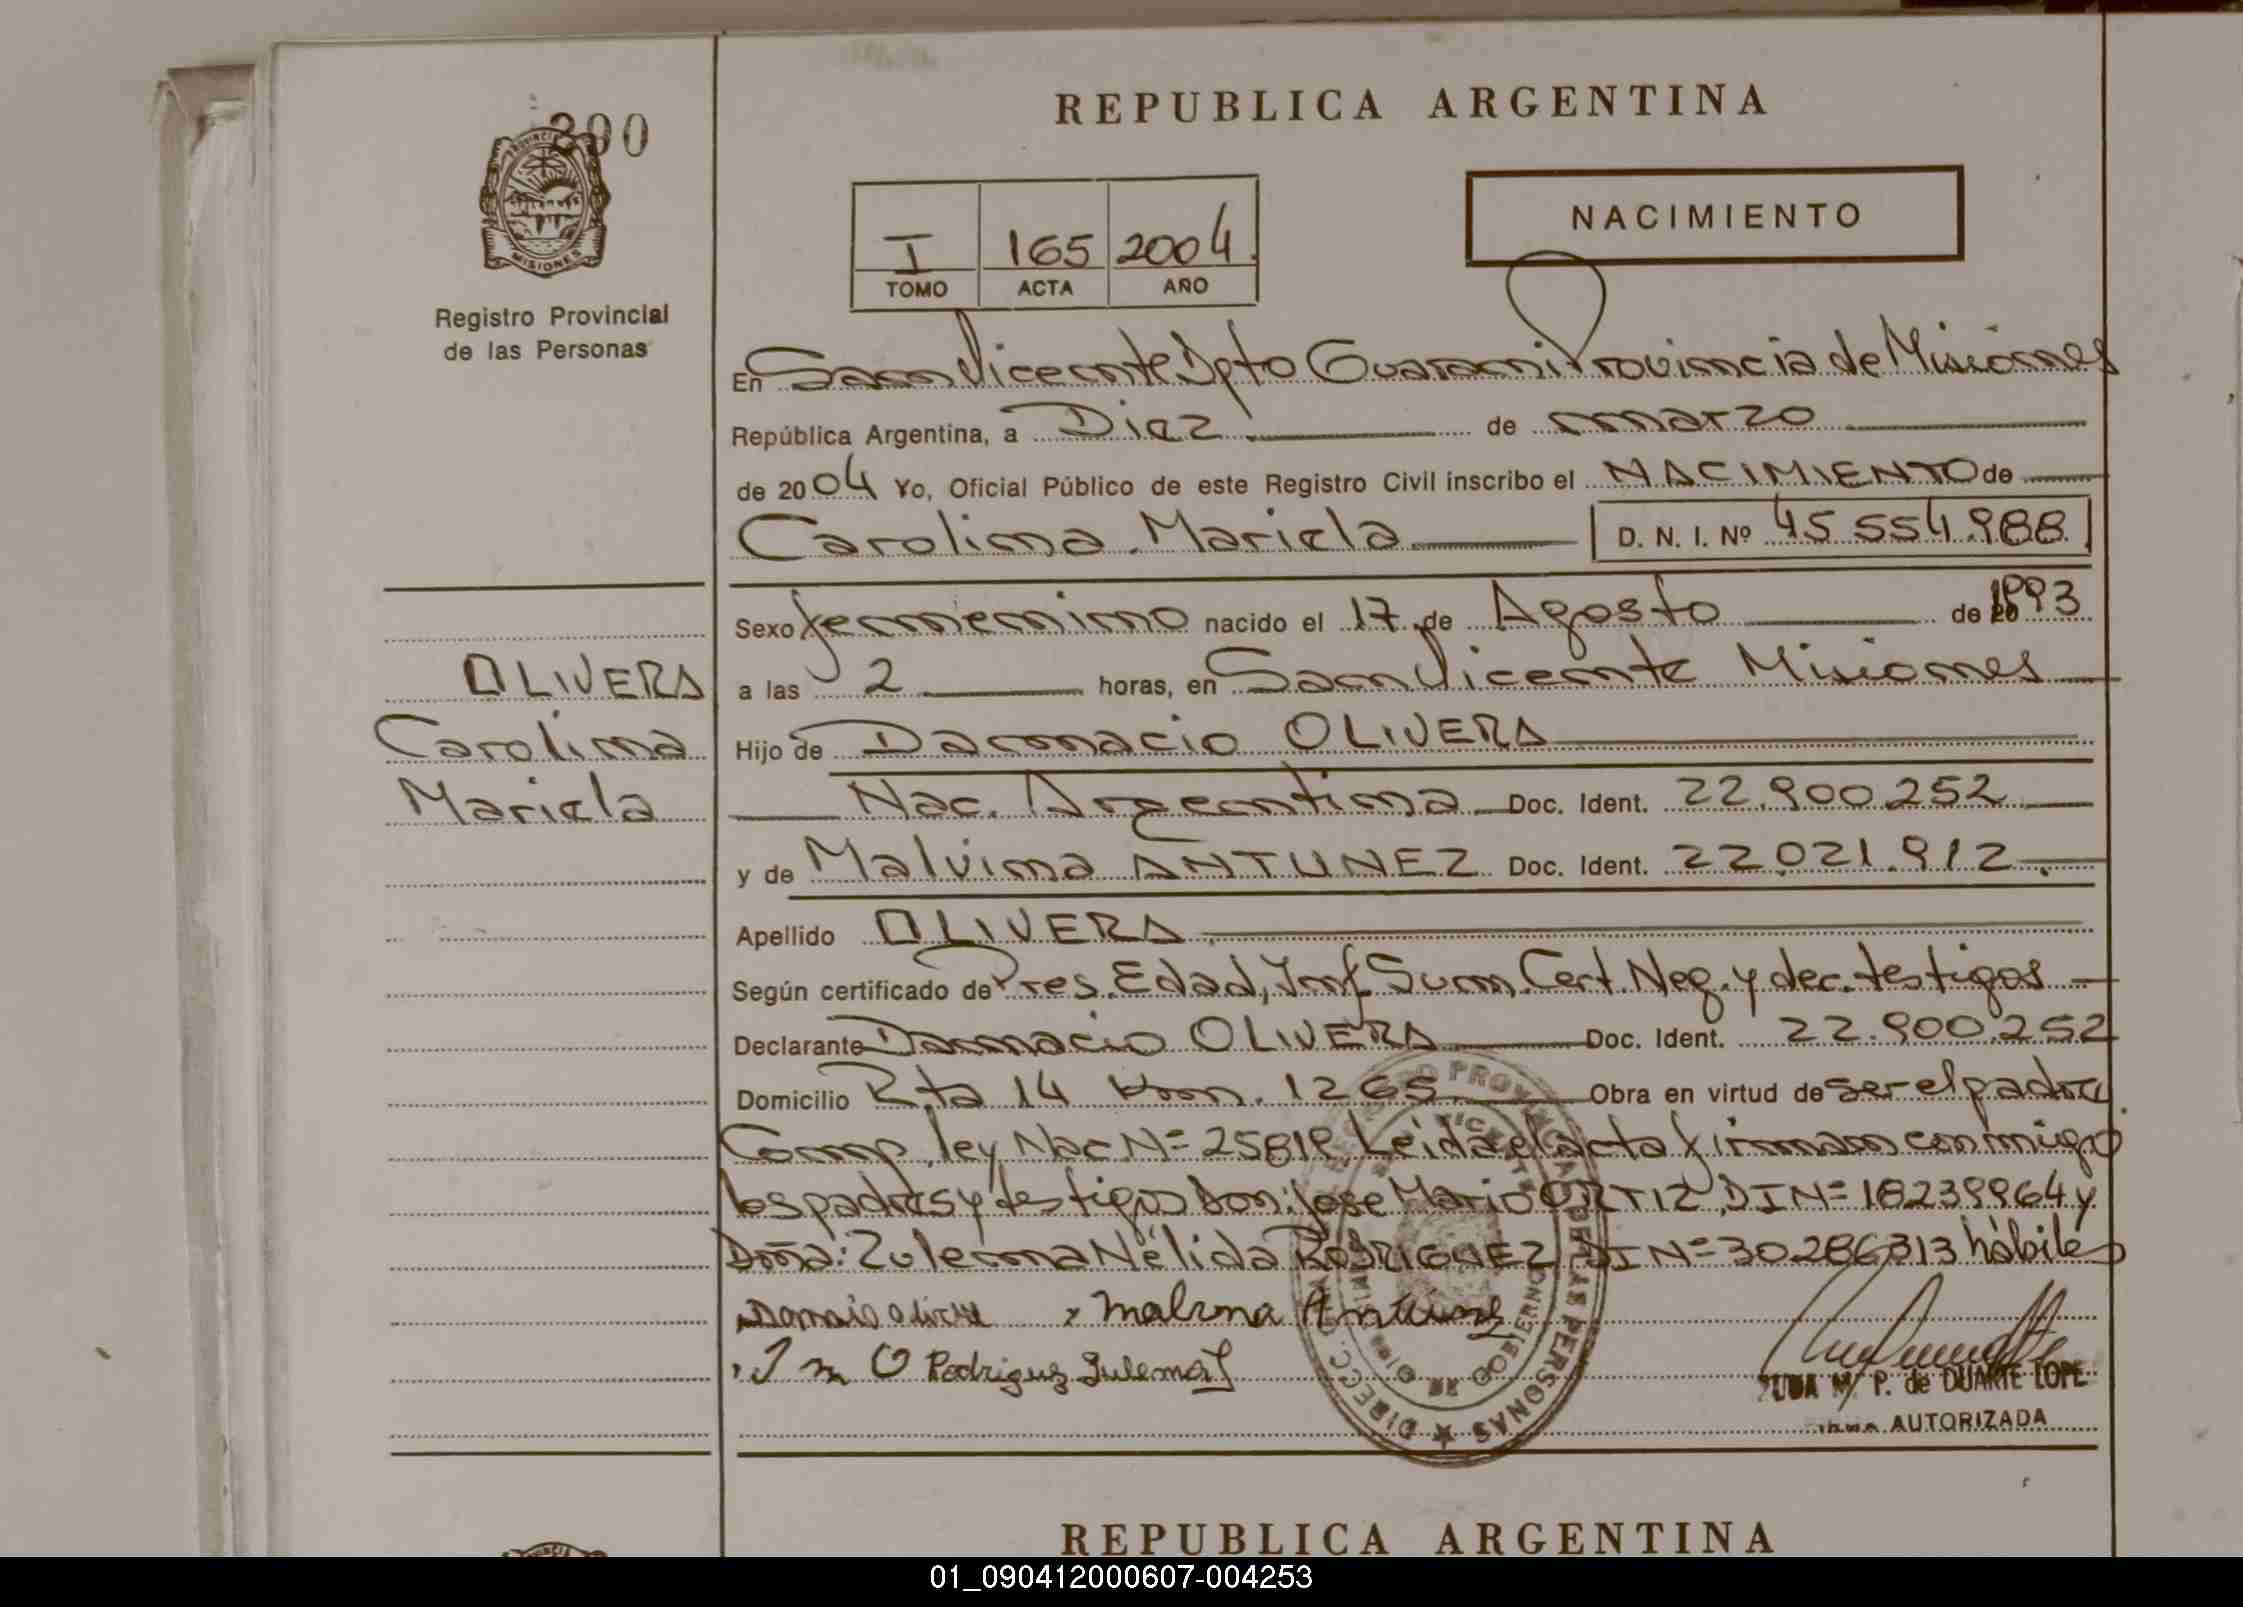 390
PROVINCIA
MISIONES
Registro Provincial
de las Personas
REPUBLICA ARGENTINA
I 165 2004
TOMO ACTA AÑO
NACIMIENTO
En San Vicente Dpto Guarani Provincia de Misiones
República Argentina, a Diez de marzo
de 2004 Yo, Oficial Público de este Registro Civil inscribo el NACIMIENTO de
Carolina Mariela D. N. I. Nº 45.554.988
Sexo femenino nacido el 17 de Agosto de 1993
OLIVERA
Carolina
Mariela
a las 2 horas, en San Vicente Misiones
Hijo de Damacio OLIVERA
Nac. Argentina Doc. Ident. 22.900.252
y de Malvina ANTUNEZ Doc. Ident. 22.021.912
Apellido OLIVERA
Según certificado de Pres. Edad, Inf. Sum. Cert. Neg. y dec. testigos
Declarante Damacio OLIVERA Doc. Ident. 22.900.252
Domicilio Rta 14 Km. 1265 Obra en virtud de ser el padre
Comp. ley Nac Nº 25819 Leida el acta firman conmigo
los padres y testigos Don: Jose Mario ORTIZ, DI Nº 18239964 y
Doña: Zulema Nélida RODRIGUEZ DI Nº 30286313 hábiles
Malvina Antunez
J m O Rodriguez Sulema
P. de DUARTE LOPE
AUTORIZADA
REPUBLICA ARGENTINA
01_090412000607-004253